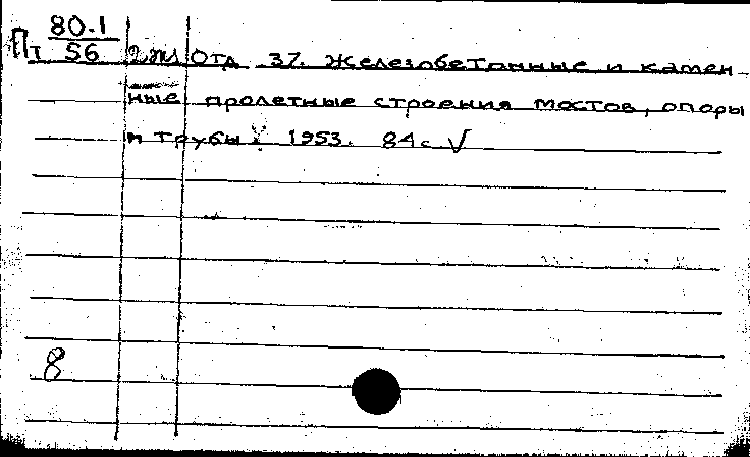 80.1
Пт 56 2 экз Отд 37. Железобетонные и камен-
ные пролетные строения мостов, опоры
и трубы. 1953. 84 с. √
8